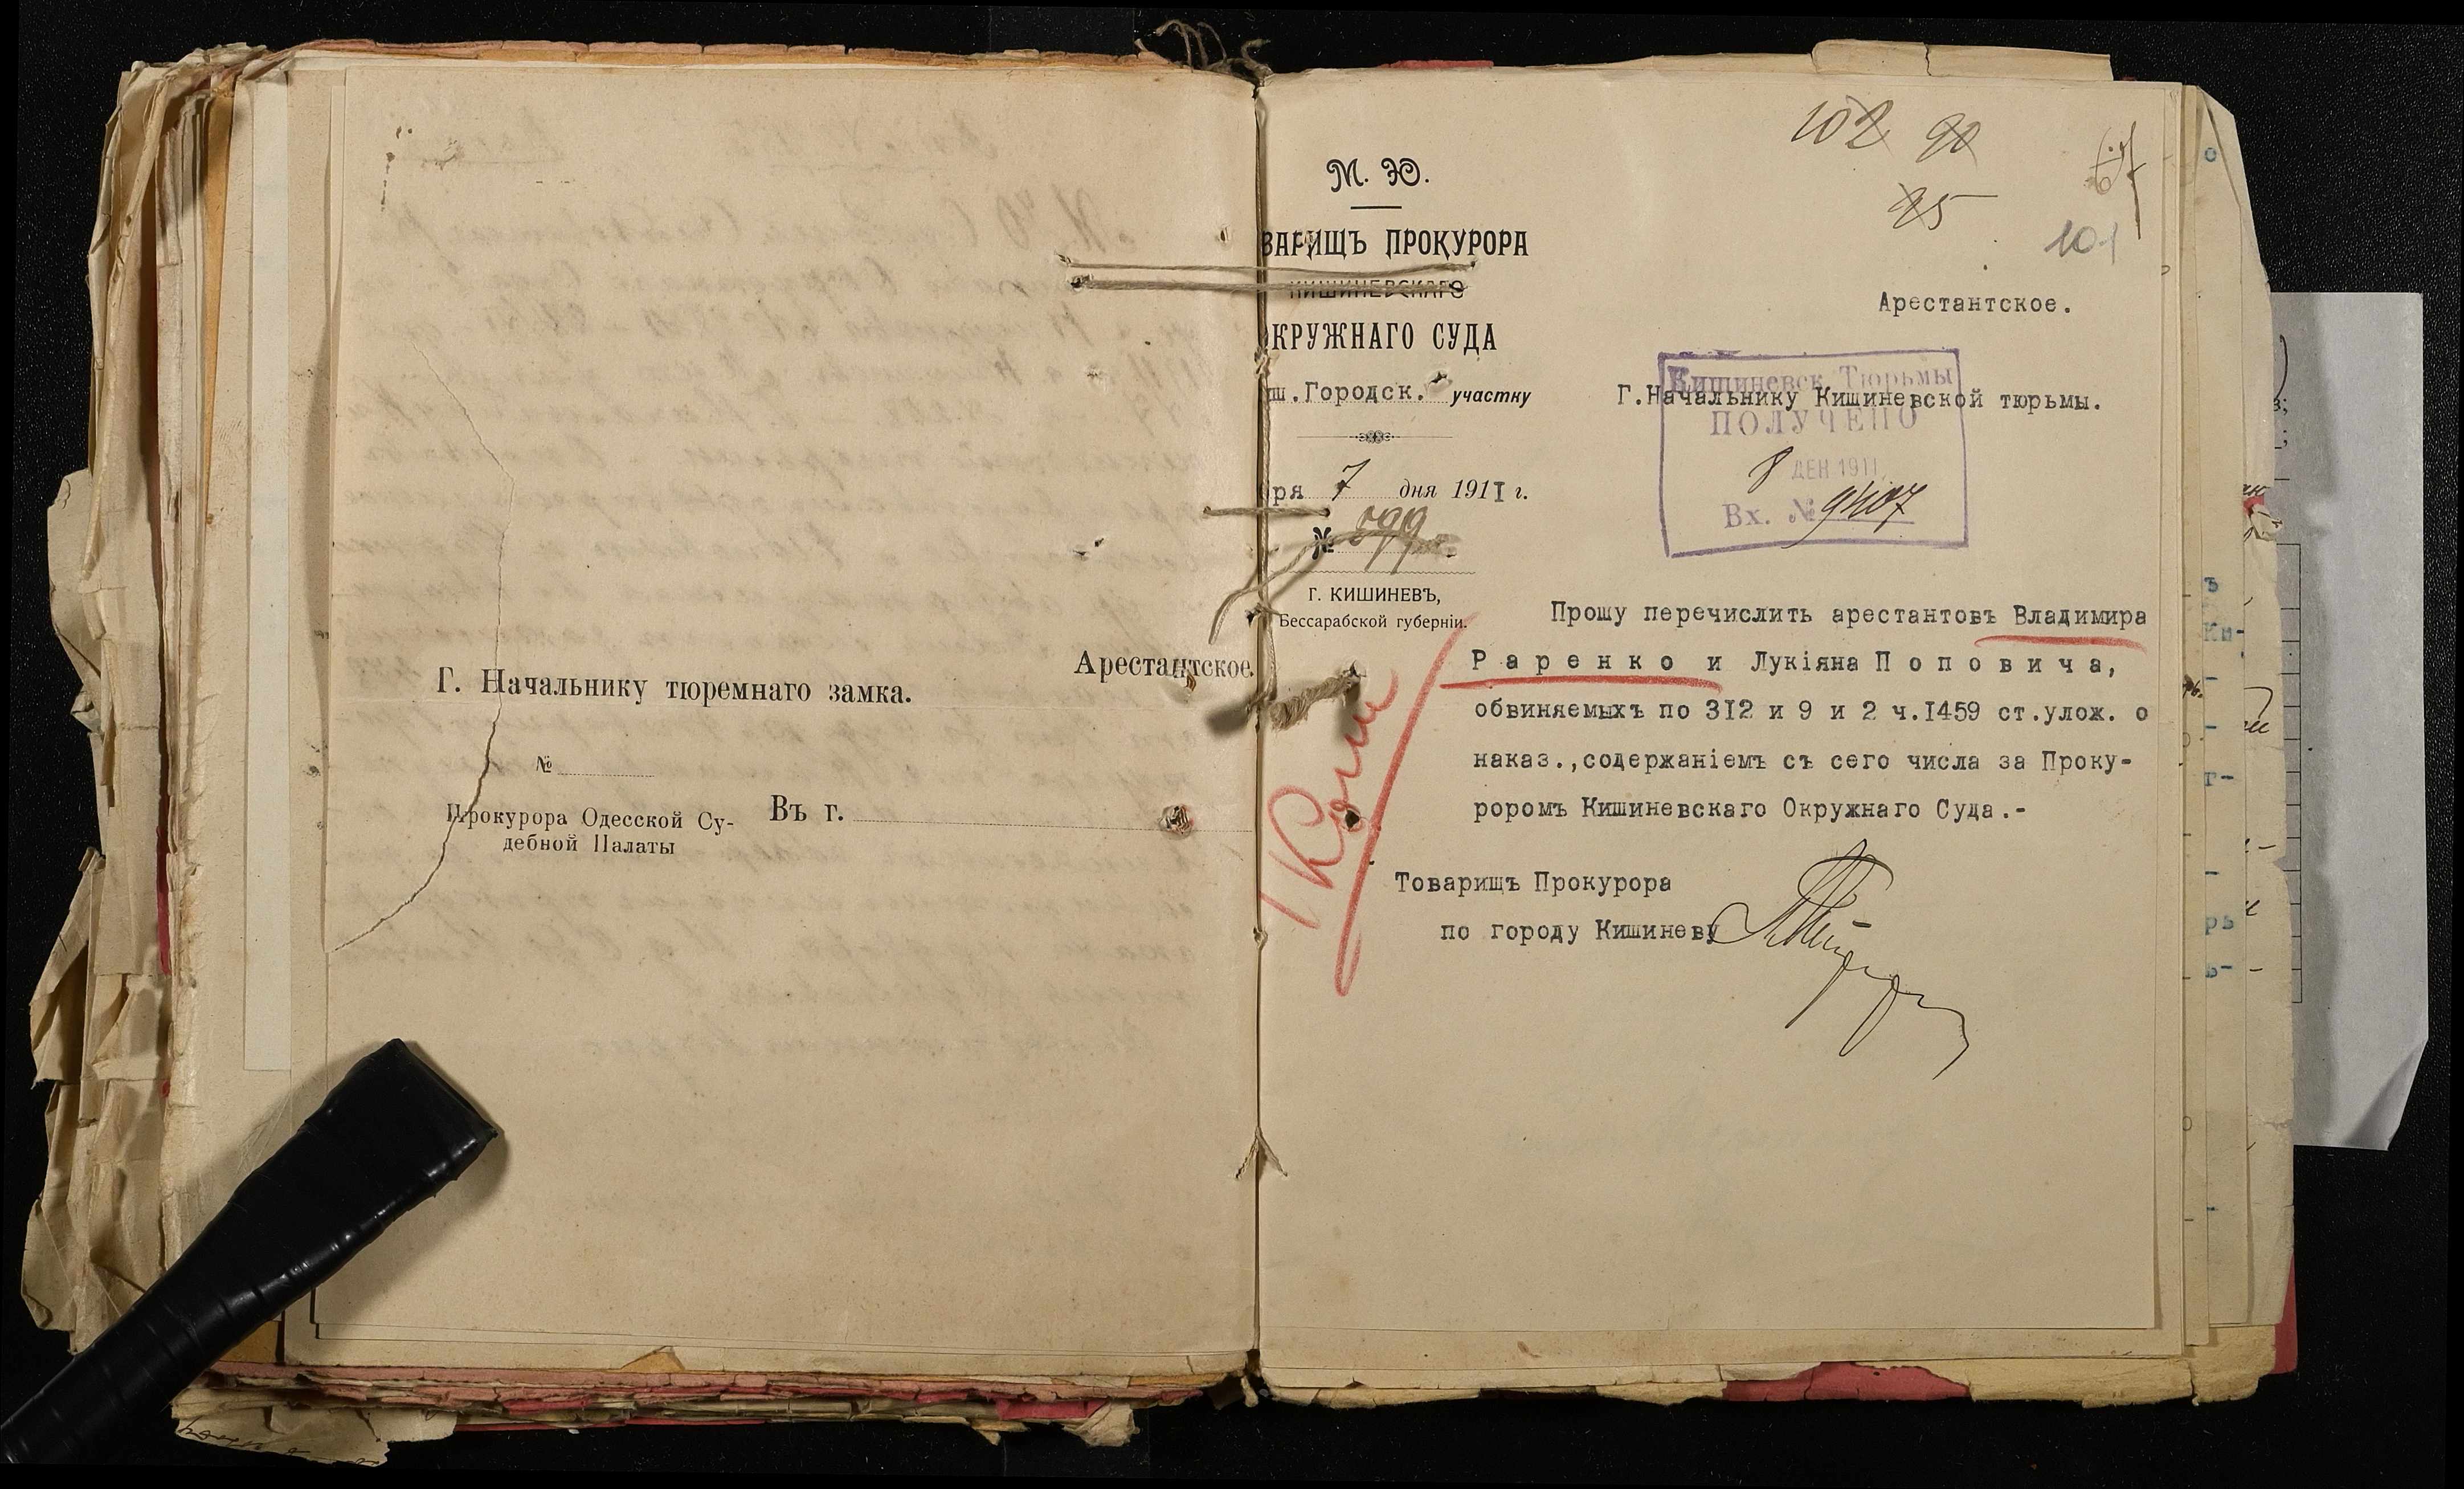 Арестантское.
Г. Начальнику тюремнаго замка.
№
Прокурора Одесской Су-
дебной Палаты
Въ г.
102 90
67
25
101
М. Ю.
ВАРИЩЪ ПРОКУРОРА
КИШИНЕВСКАГО
КРУЖНАГО СУДА
ш.Городск. участку
ря 7 дня 1911 г.
№ 899
Г. КИШИНЕВЪ,
Бессарабской губерніи.
Арестантское.
Г.Начальнику Кишиневской тюрьмы.
Кишиневск Тюрьмы
ПОЛУЧЕНО
8 ДЕК 1911
Вх. № 9407
Прошу перечислить арестантовъ Владимира
Раренко и Лукіяна Поповича,
обвиняемыхъ по 312 и 9 и 2 ч.1459 ст.улож. о
наказ.,содержаніемъ съ сего числа за Проку-
роромъ Кишиневскаго Окружнаго Суда.-
Товарищъ Прокурора
по городу Кишиневу